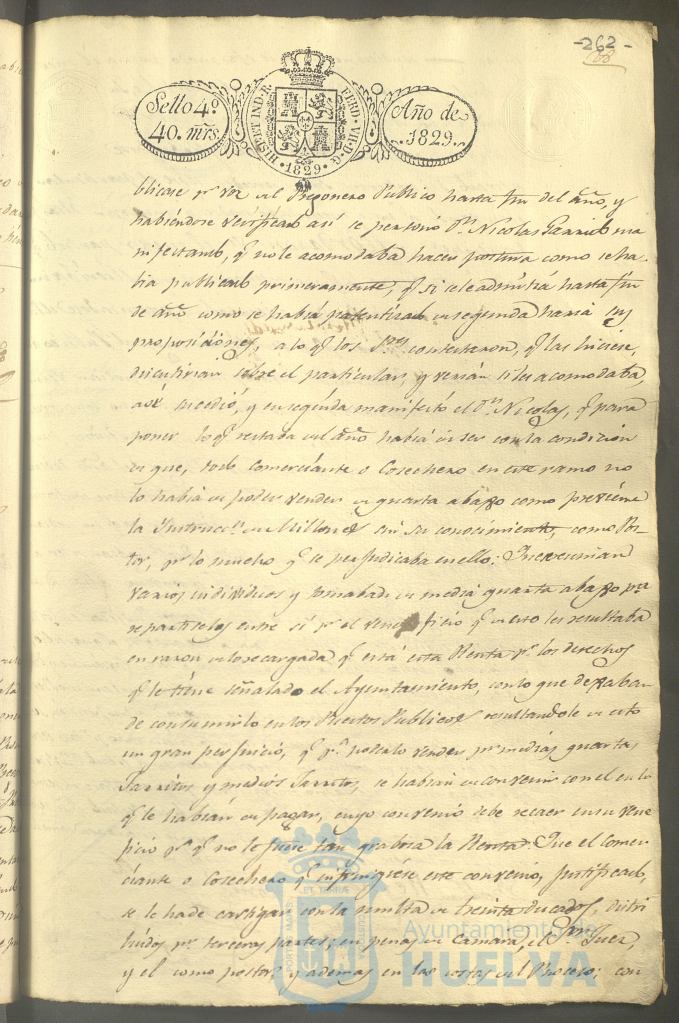 -262-
168
Sello 4º
40. mrs.
HISP. ET IND. R. FERD. VII. D. G.
·1829·
Año de
1829.
blicase pr. voz del Pregonero Publico hasta fin del año, y
habiéndose verificado así se personó Dn. Nicolas Garrido ma
nifestando, q. no le acomodaba hacer postura como se ha-
bia publicado primeramente, q. si se le admitia hasta fin
de año como se había en segunda haria sus
proposiciones, a lo q. los Sres. contestaron, q. las hiciese,
discutirian sobre el particular, y verian si les acomodaba,
así sucedió, y en segunda manifestó el Dn. Nicolas, q. para
poner lo q. restada del año habia de ser con la condición
de que, todo Comerciante o Cosechero en este ramo no
lo habia de poder vender de quarta abajo como previene
la Instruccn. de Millones sin su conocimiento, como Pos-
tor, pr. lo mucho q. se perjudicaba en ello: Que se reunian
varios individuos y tomaban de media quarta abajo pra.
repartirselos entre sí pr. el veneficio q. de esto les resultaba
en razon de lo recargada q. está esta Renta pr. los derechos
q. le tiene señalado el Ayuntamiento, con lo que dejaban
de consumirlo en los Puestos Publicos resultandole de esto
un gran perjuicio, q. pa. poderlo vender pr. medias quartas
Jarritos y medios Jarritos, se habian de convenir con el en lo
q. le habian de pagar, cuyo convenio debe recaer en su vene
ficio pr. q. no le fuese tan grabosa la Renta: Que el Comer
ciante o Cosechero q. infringiese este convenio, justificado,
se le ha de castigar con la multa de treinta ducados, distri
buidos pr. terceras partes; en penas de Camara, el Sor. Juez,
y el como postor y ademas en las costas del Proceso; con
PORTUS MARIS ET TERRAE CUSTODIA
Ayuntamiento de
HUELVA